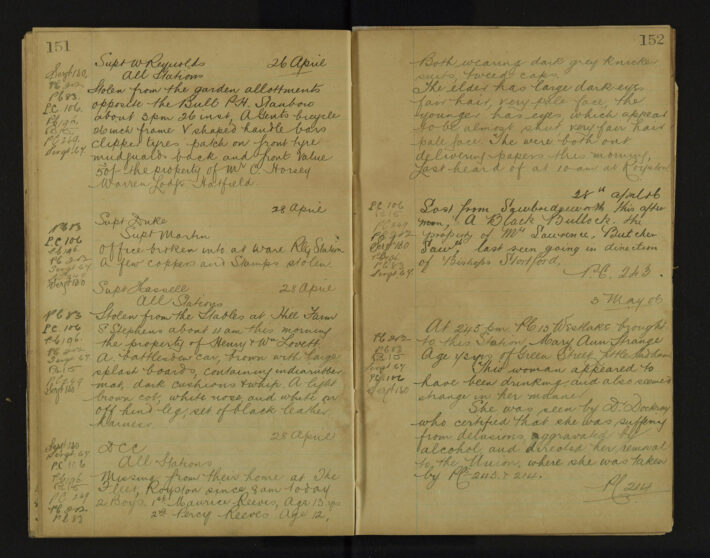 151
Supt W Reynolds 26 April
All Stations
Stolen from the garden allottments
opposite the Bull P.H. Stanboro
about 3pm 26 inst, A Gents bicycle
26 inch frame V shaped handle bars
clipped tyres patch on front tyre
mudguards back and front value
50/- the property of Mr C. Horsey
Warren Lodge Hatfield
28 April
Supt Duke
Supt Martin
Office broken into at Ware Rly Station
A few coppers and Stamps stolen
Supt Hassell 28 April
All Stations
Stolen from the Stables at Hill Farm
St Stephens about 11 am this morning
the property of Henry & Wm Lovett
A battlesbow car, brown with large
splast boards, containing indiarubber
mat, dark cushions & whip. A light
brown cob, white nose and white on
off hind leg, set of black leather
harness
28 April
DCC
All Stations
Missing from their home at The
Fleet, Royston since 8am today
2 Boys, 1st Maurice Reeves, Age 13 yrs
2nd Percy Reeves Age 12,
Sergt 120
PC 202
PC 83
PC 106
PC 83
PC 106
PC 202
Sergt 64
Sergt 120
PC 83
PC 106
PC 202
Sergt 64
PC 15
Sergt 120
Sergt 120
Sergt 64
PC 106
PC 15
PC 202
PC 83
152
Both wearing dark grey knicker
suits, tweed caps.
The elder has large dark eyes
fair hair, very pale face, the
younger has eyes which appear
to be almost shut very fair hair
pale face. The were both out
delivering papers this morning,
last heard of at 10 am at Royston
28th april 06
Lost from Sawbridgeworth this after
noon, A Black Bullock. the
property of Mrs Lawrence, Butcher
Sawth, last seen going in direction
of Bishops Stortford.
P.C. 243.
3 May 06
At 2.45 pm PC 13 Westlake brought
to this Station, Mary Ann Strange
Age 48 yrs of Green Street Little Hadham
This woman appeared to
have been drinking and also seemed
strange in her manner
She was seen by Dr Dockray
who certified that she was suffering
from delusions, aggravated by
alcohol and directed her removal
to the Union, where she was taken
by PCs 243 & 214.
PC 214
PC 106
PC 202
Sergt 120
PC 83
Sergt 64
PC 202
PC 83
PC 15
Sergt 64
PC 106
Sergt 120